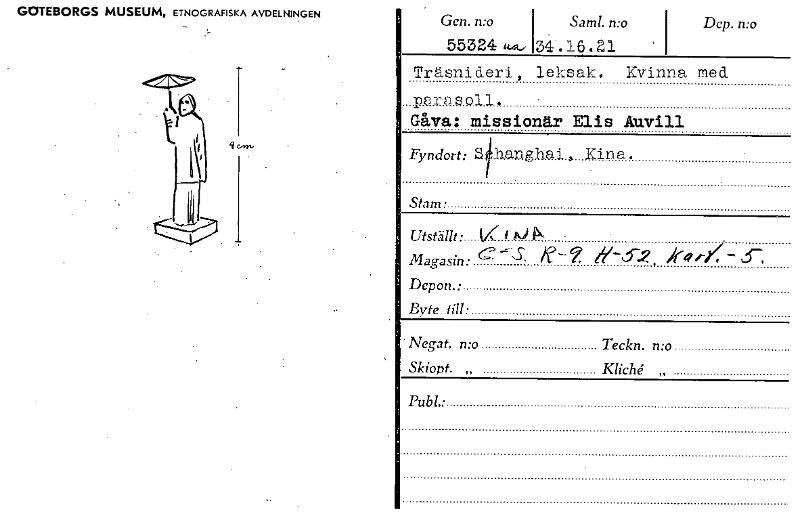 GÖTEBORGS MUSEUM, ETNOGRAFISKA AVDELNINGEN
Gen. n:o Saml. n:o Dep. n:o
55324 ua 34.16.21
Träsnideri, leksak. Kvinna med
parasoll.
Gåva: missionär Elis Auvill
Fyndort: Schanghai, Kina.
Stam:
Utställt: KINA
Magasin: C-S. R-9. H-52. Kart.-5.
Depon.:
Byte till:
Negat. n:o Teckn. n:o
Skiopt. „ Kliché „
Publ.:
9 cm